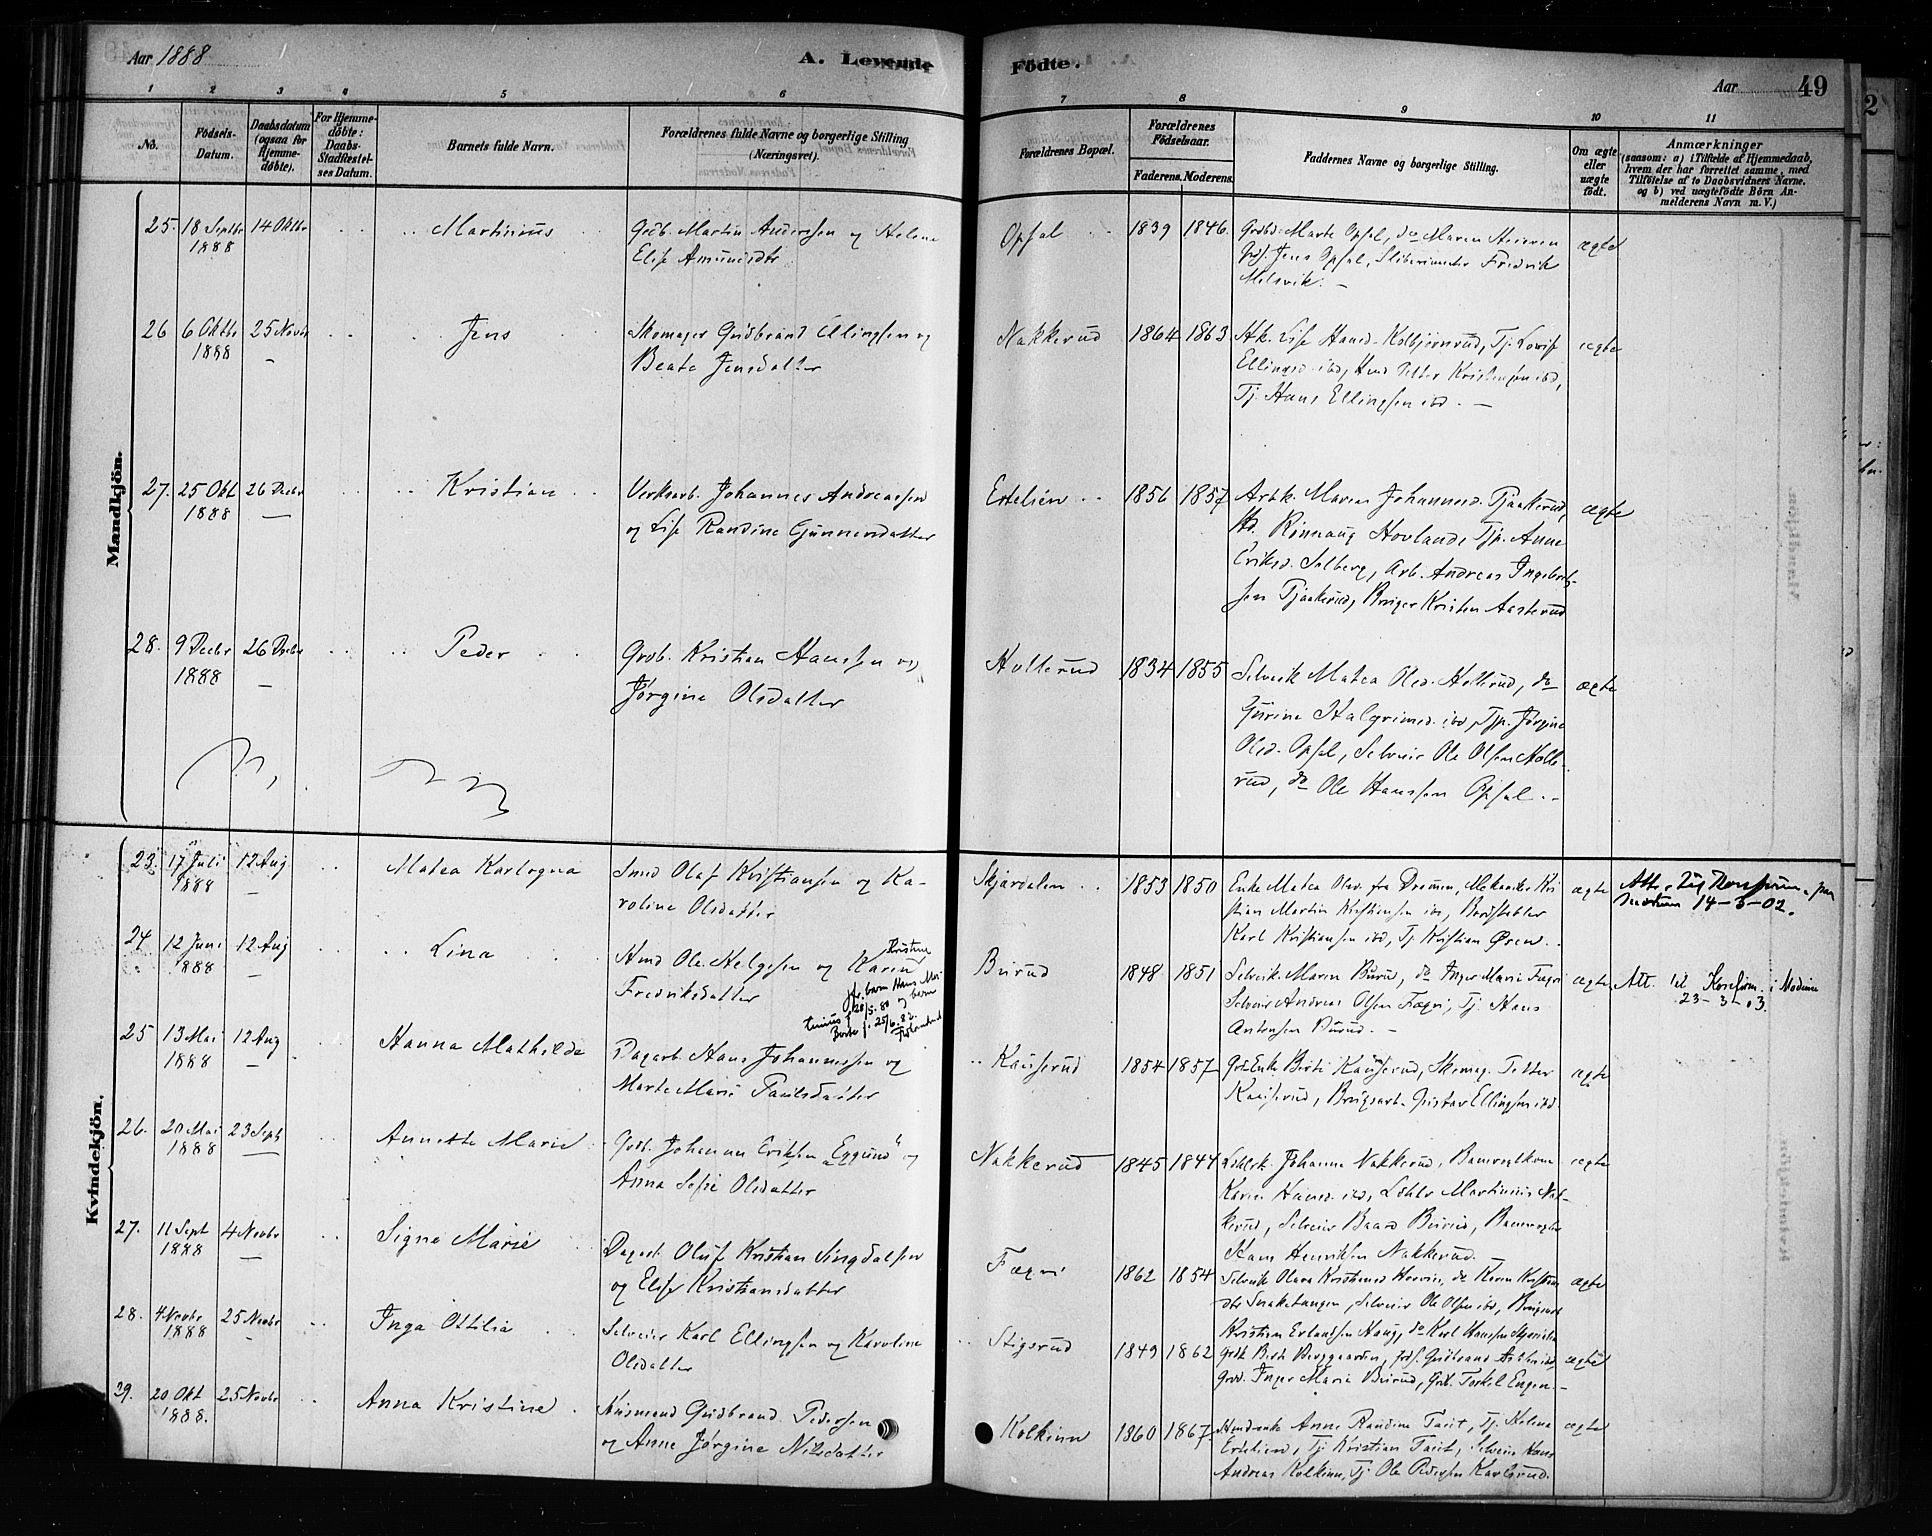 Aar 1888
A. Levende
Födte.
Aar 49
1 2 3 4 5 6 7 8 9 10 11
No.
Födsels-
Datum.
Daabsdatum
(ogsaa for
Hjemme-
döbte).
For Hjemme-
döbte:
Daabs-
Stadfæstel-
ses Datum.
Barnets fulde Navn.
Forældrenes fulde Navne og borgerlige Stilling
(Næringsvei).
Forældrenes Bopæl.
Forældrenes
Födselsaar.
Faderens. Moderens.
Faddernes Navne og borgerlige Stilling.
Om ægte
eller
uægte
födt.
Anmærkninger
(saasom: a) i Tilfælde af Hjemmedaab,
hvem der har forrettet samme, med
Tilföielse af to Daabsvidners Navne.
og b) ved uægtefödte Börn An-
melderens Navn m. V.)
Mandkjön.
25. 18 Septbr 1888 14 Oktbr Martinius
Grdb. Martin Anderssen og Helene
Elise Amundsdtr
Opsal 1839 1846.
Grdbd. Marte Opsal, do Maren
Grds. Jens Opsal, Fredrik
Melsvik. —
ægte
26 6 Oktbr 1888 25 Novbr Jens
Skomager Gudbrand Ellingsen og
Beate Jensdatter
Nakkerud 1864 1863
Lise Hansd. Kolbjörnrud, Tj. Lovise
Ellingsd. ibd, Petter Kristensen ibd,
Tj. Hans Ellingsen ibd. —
ægte
27. 25 Okt 1888 26 Decbr Kristian
Verksarb. Johannes Andreassen
og Lise Randine Gunnersdatter
Ertelien 1856 1857
Arbk. Maren Johannesd. Tjaakerud,
Rönnaug Hovland, Tjp. Anne
Eriksd. Solberg, Arb. Andreas Ingebret-
sen Tjaakerud, Bruger Kristen Aasterud
ægte
28. 9 Decbr 1888 26 Decbr Peder
Grdb. Kristian Hanssen og
Jørgine Olsdatter
Hollerud 1834 1855
Selveik Matea Olsd. Hollerud, do
Gurine Halgrimsd. ibd, Tjp. Jørgine
Olsd. Opsal, Selveier Ole Olsen Holle-
rud, do Ole Hanssen Opsal. —
ægte
Kvindekjön.
23. 17 Juli 1888 12 Aug Matea Karlogna
Smed Olaf Kristiansen og Ka-
roline Olsdatter
Skjærdalen 1853 1850
Enke Matea Olsd. fra Drammen, Mekaniker Kri
stian Martin Kristiansen ibd,
Karl Kristiansen ibd, Tj. Kristian Øren
ægte
Modum 14-3-02.
24 12 Juni 1888 12 Aug Lina
Hmd Ole Helgesen og Karen Kristine
Fredriksdatter
jfr. barn Hans Mar-
tinius f. 28/5. 80 og barn
Berte f. 25/6. 82.
Burud 1848 1851
Selveik Maren Burud, do Inger Marie Fægri
Selveier Andreas Olsen Fægri, Tj. Hans
Antonsen Burud. —
ægte
Att. til Konfirm. i Modum
23-3-03.
25 13 Mai 1888 12 Aug Hanna Mathilde
Dagarb. Hans Johannessen og
Marte Marie Paulsdatter
Kauserud 1854 1857
Grd. Enke Berte Kauserud, Skomag. Petter
Kauserud, Brugsarb. Gustav Ellingsen ibd.
ægte
26. 20 Mai 1888 23 Sept Annette Marie
Grdb. Johannes Eriksen "Eggund" og
Anna Sofie Olsdatter
Nakkerud 1845 1844
Johanna Nakkerud,
Karen Hansd. ibd, Martinius Nak-
kerud, Selveier Baard Burud,
Hans Henriksen Nakkerud. —
ægte
27. 11 Sept 1888 4 Novbr Signe Marie
Dagarb. Oluf Kristian Singdalsen
og Elise Kristiansdatter
Fægri 1862 1854
Selveik Olava Kristiansd. do Karen Kristians
dtr Snaketangen, Selveier Ole Olsen ibd,
Kristian Erlandsen Haug, do Karl Hanssen
ægte
28. 4 Novbr 1888 25 Novbr Inga Ottilia
Selveier Karl Ellingsen og Karoline
Olsdatter
Stigsrud 1849 1862
Berte Berggaarden, Grds. Gudbrand
Inger Marie Burud, Grdb. Torkel Engen. —
ægte
29. 20 Okt 1888. 25 Novbr Anna Kristine
Husmand Gudbrand Pedersen
og Anne Jørgine Nilsdatter
Kolkinn 1860 1867
Anne Randine Tait, Tj. Helena
Ertelien, Tj Kristian Tait, Selveier Hans
Andreas Kolkinn, Tj. Ole Pedersen Karlsrud.
ægte